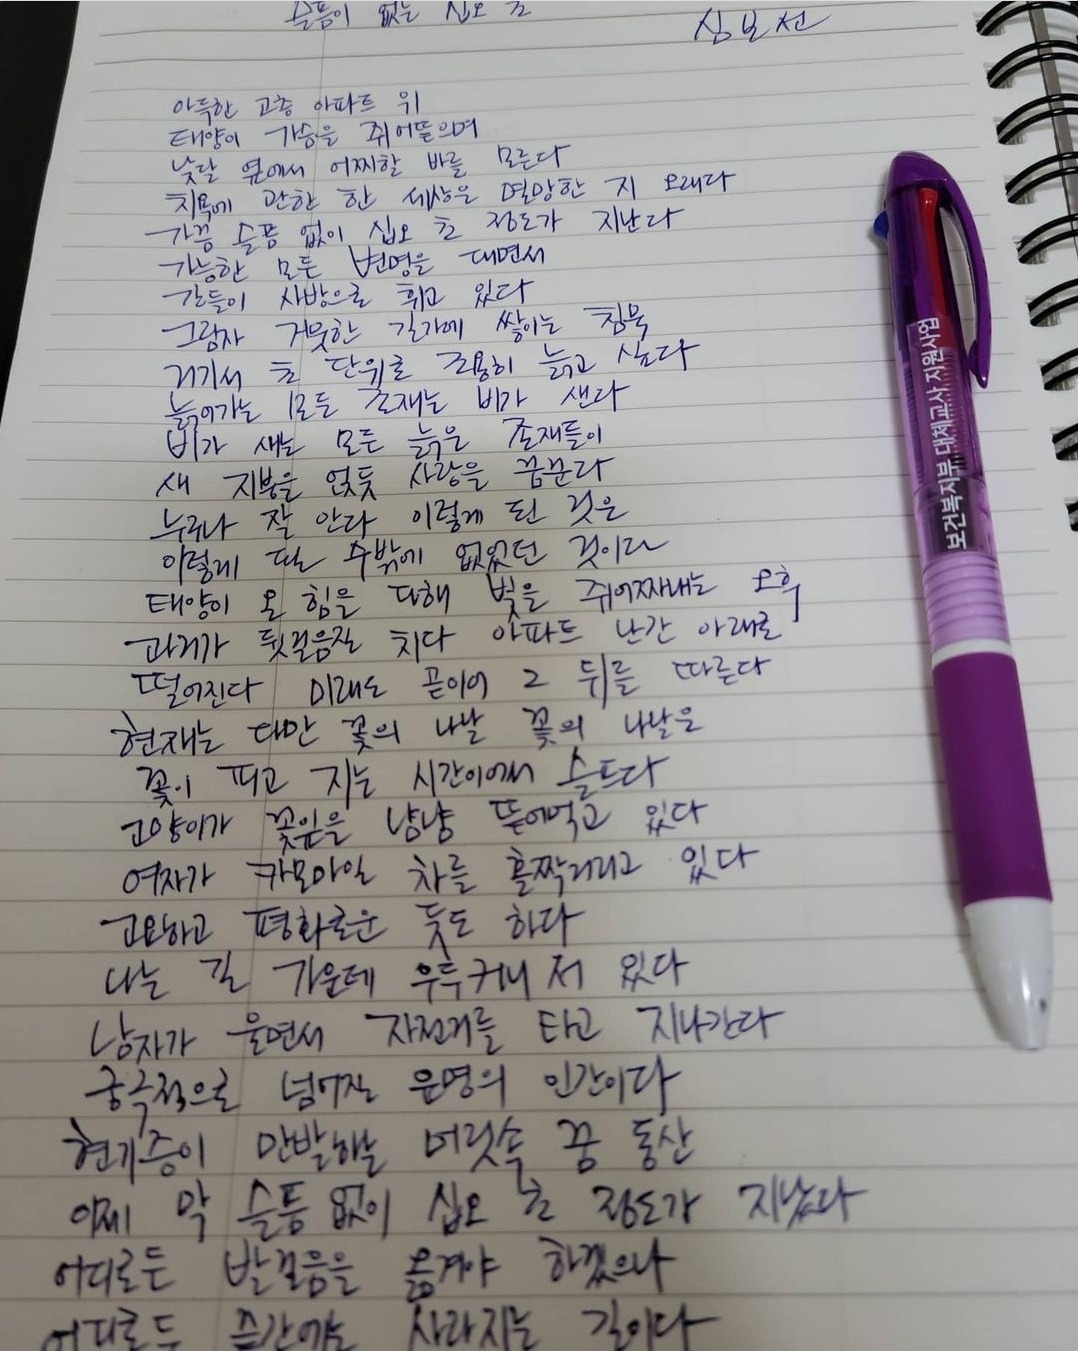 슬픔이 없는 십오 초
심보선
아득한 고층 아파트 위
태양이 가슴을 쥐어뜯으며
낮달 옆에서 어찌할 바를 모른다
치욕에 관한 한 세상은 멸망한 지 오래다
가끔 슬픔 없이 십오 초 정도가 지난다
가능한 모든 변명을 대면서
길들이 사방으로 휘고 있다
그림자 거뭇한 길가에 쌓이는 침묵
거기서 초 단위로 조용히 늙고 싶다
늙어가는 모든 존재는 비가 샌다
비가 새는 모든 늙은 존재들이
새 지붕을 얹듯 사랑을 꿈꾼다
누구나 잘 안다 이렇게 된 것은
이렇게 될 수밖에 없었던 것이다
태양이 온 힘을 다해 빛을 쥐어짜내는 오후
과거가 뒷걸음질 치다 아파트 난간 아래로
떨어진다 미래도 곧이어 그 뒤를 따른다
현재는 다만 꽃의 나날 꽃의 나날은
꽃이 피고 지는 시간이어서 슬프다
고양이가 꽃잎을 냥냥 뜯어먹고 있다
여자가 카모마일 차를 홀짝거리고 있다
고요하고 평화로운 듯도 하다
나는 길 가운데 우두커니 서 있다
남자가 울면서 자전거를 타고 지나간다
궁극적으로 넘어질 운명의 인간이다
현기증이 만발하는 머릿속 꿈 동산
이제 막 슬픔 없이 십오 초 정도가 지났다
어디로든 발걸음을 옮겨야 하겠으나
어디로든 끝간에는 사라지는 길이다
보건복지부 대체교사 지원사업